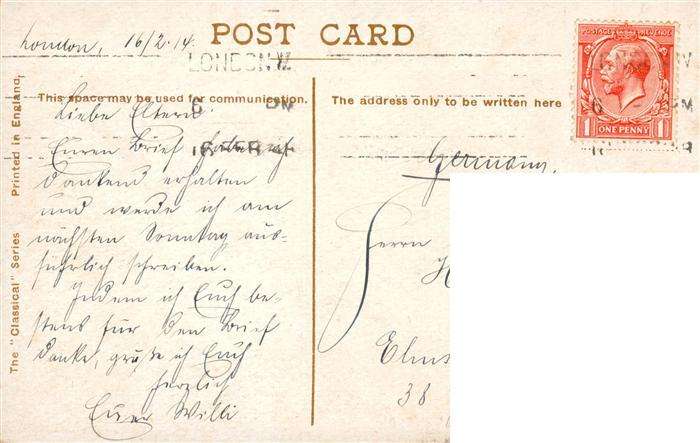 London, 16/2.14.
POST CARD
LONDON. W.
This space may be used for communication.
The address only to be written here
POSTAGE REVENUE
1 ONE PENNY 1
6 PM
16 FEB 14
Liebe Eltern!
Euren Brief habe ich
dankend erhalten
und werde ich am
nächsten Sonntag aus-
führlich schreiben.
Indem ich Euch be-
stens für den Brief
danke, grüße ich Euch
herzlich
Euer Willi
Germany.
Herrn
H
Elms
38
The "Classical" Series Printed in England.